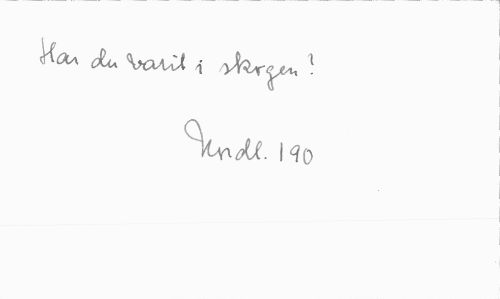 Har du varit i skogen?
Nordl. 190